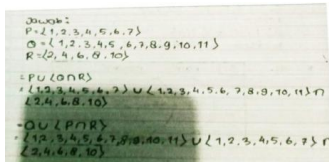 Jawab:
P={1,2,3,4,5,6,7}
Q={1,2,3,4,5,6,7,8,9,10,11}
R={2,4,6,8,10}
= PU(QnR)
= {1,2,3,4,5,6,7} U {1,2,3,4,5,6,7,8,9,10,11} n
{2,4,6,8,10}
= QU (PnR)
= {1,2,3,4,5,6,7,8,9,10,11} U {1,2,3,4,5,6,7} n
{2,4,6,8,10}